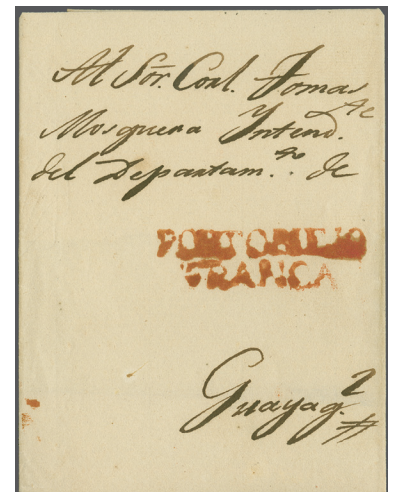 Al Sôr. Corl. Tomas de
Mosquera Yntend.te
del Departam.to de
PORTOBIEJO
FRANCA
Guayaq.l